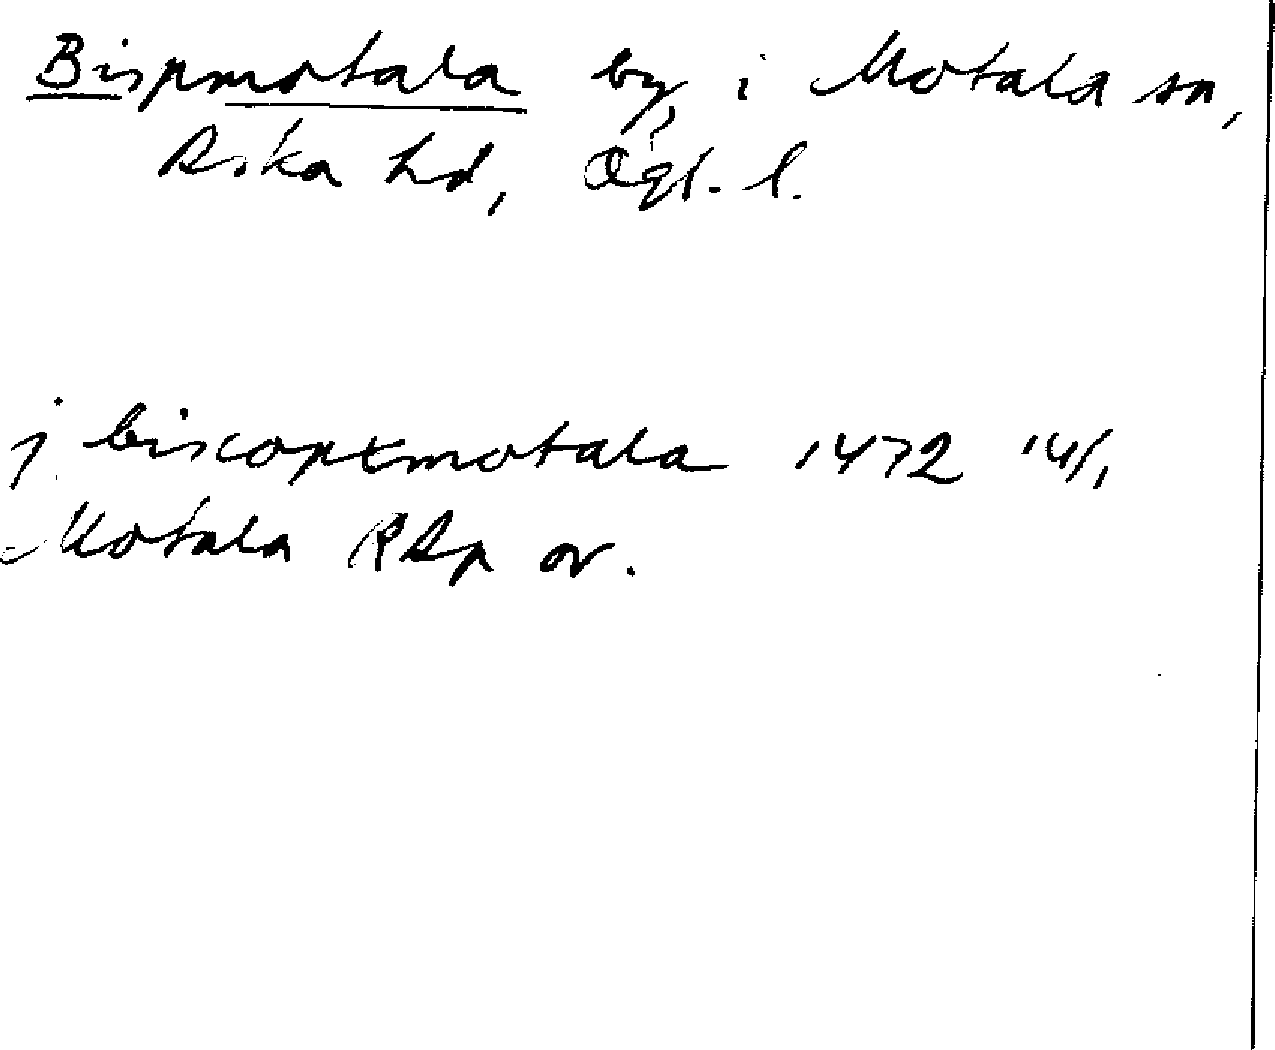 Bispmotala by, i Motala sn,
Aska hd, Ögl. l.
j biscopxmotala 1472 14/1
Motala RAp or.